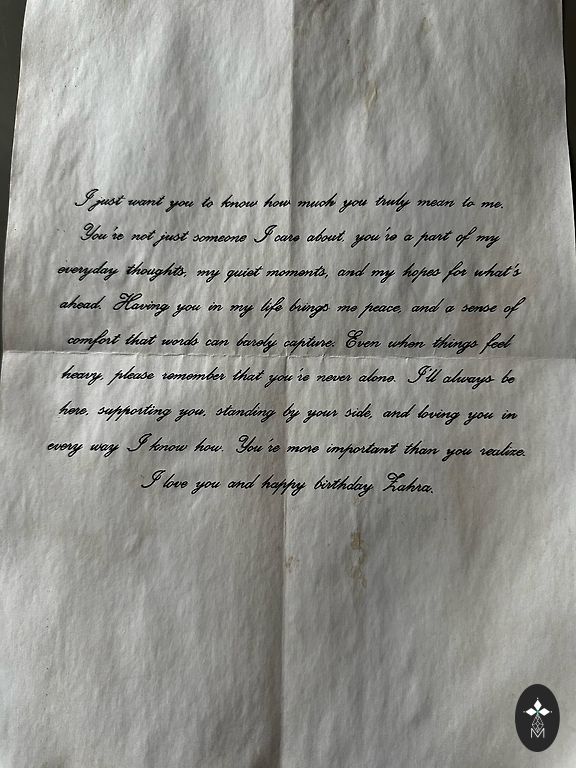 I just want you to know how much you truly mean to me.
You're not just someone I care about, you're a part of my
everyday thoughts, my quiet moments, and my hopes for what's
ahead. Having you in my life brings me peace, and a sense of
comfort that words can barely capture. Even when things feel
heavy, please remember that you're never alone. I'll always be
here, supporting you, standing by your side, and loving you in
every way I know how. You're more important than you realize.
I love you and happy birthday Zahra.
M